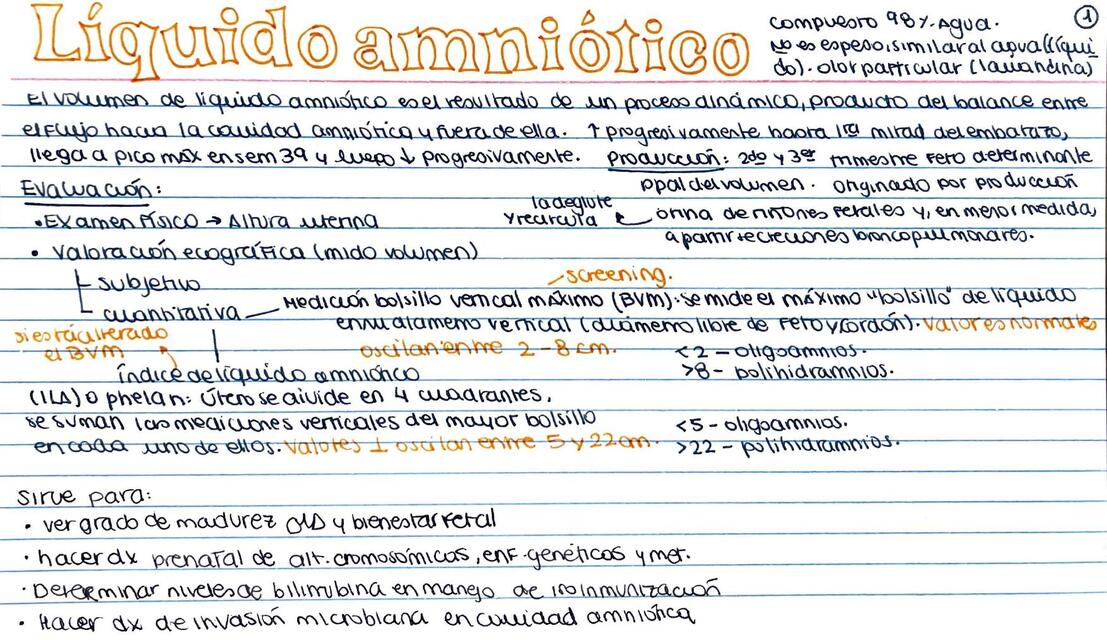 Líquido amniótico
compuesto 98% Agua.
No es espeso, similar al agua (líqui
do). olor particular (lavandina)
1
El volumen de líquido amniótico es el resultado de un proceso dinámico, producto del balance entre
el flujo hacia la cavidad amniótica y fuera de ella. ↑ progresivamente hasta 1ra mitad del embarazo,
llega a pico máx en sem 39 y luego ↓ progresivamente. Producción: 2do y 3er trimestre feto determinante
ppal del volumen. originado por producción
orina de riñones fetales y, en menor medida,
a partir secreciones broncopulmonares.
la deglute
y recircula
Evaluación:
• Examen Físico → Altura uterina
• Valoración ecográfica (mido volumen)
subjetivo
cuantitativa
screening.
Medición bolsillo vertical máximo (BVM): se mide el máximo "bolsillo" de líquido
en su diámetro vertical (diámetro libre de feto y cordón). Valores normales
oscilan entre 2-8 cm.
<2 - oligoamnios.
>8 - polihidramnios.
si está alterado
el BVM
índice de líquido amniótico
(ILA) o phelan: Útero se divide en 4 cuadrantes,
se suman las mediciones verticales del mayor bolsillo
en cada uno de ellos. Valores ⊥ oscilan entre 5 y 22cm.
<5 - oligoamnios.
>22 - polihidramnios.
Sirve para:
• ver grado de madurez y bienestar fetal
• hacer dx prenatal de alt. cromosómicas, enf. genéticas y met.
• Determinar niveles de bilirrubina en manejo de isoinmunización
• Hacer dx de invasión microbiana en cavidad amniótica